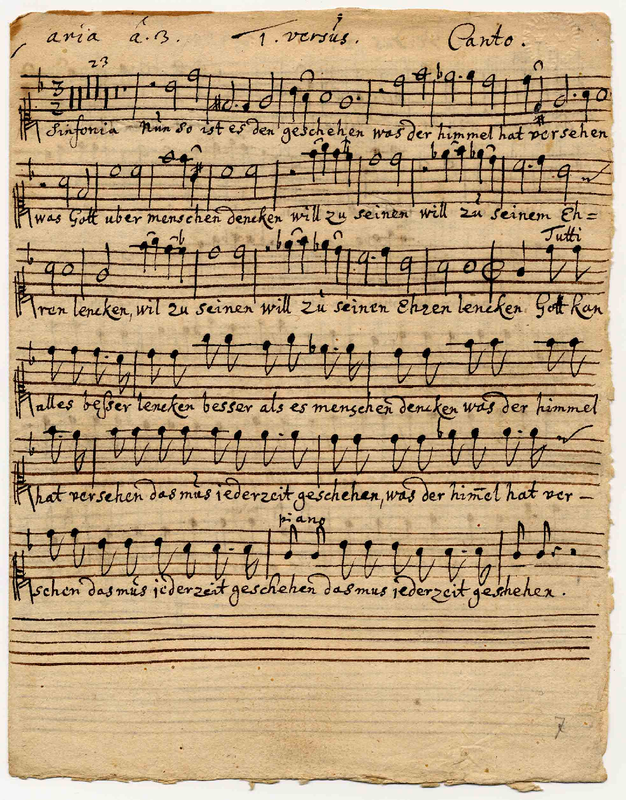 aria à. 3. 1. versus. Canto.
23
3
2
Sinfonia Nun so ist es den geschehen was der himmel hat versehen
was Gott uber menschen dencken will zu seinen will zu seinem Eh=
Tutti
ren lencken, wil zu seinen will zu seinen Ehren lencken Gott kan
alles besser lencken besser als es menschen dencken was der himmel
hat versehen das mus jederzeit geschehen, was der him̄el hat ver –
piano
sehen das mus jederzeit geschehen das mus jederzeit geshehen .
7